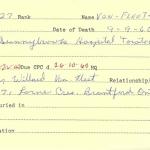 27 Rank Name VON-FLEET-
Date of Death 9-9-6
Sunnybrook Hospital Toronto
Due CPC d. 26-10-60 NQ
Willard Van Fleet Relationship
Lorne Cres. Brantford Ont
uried in